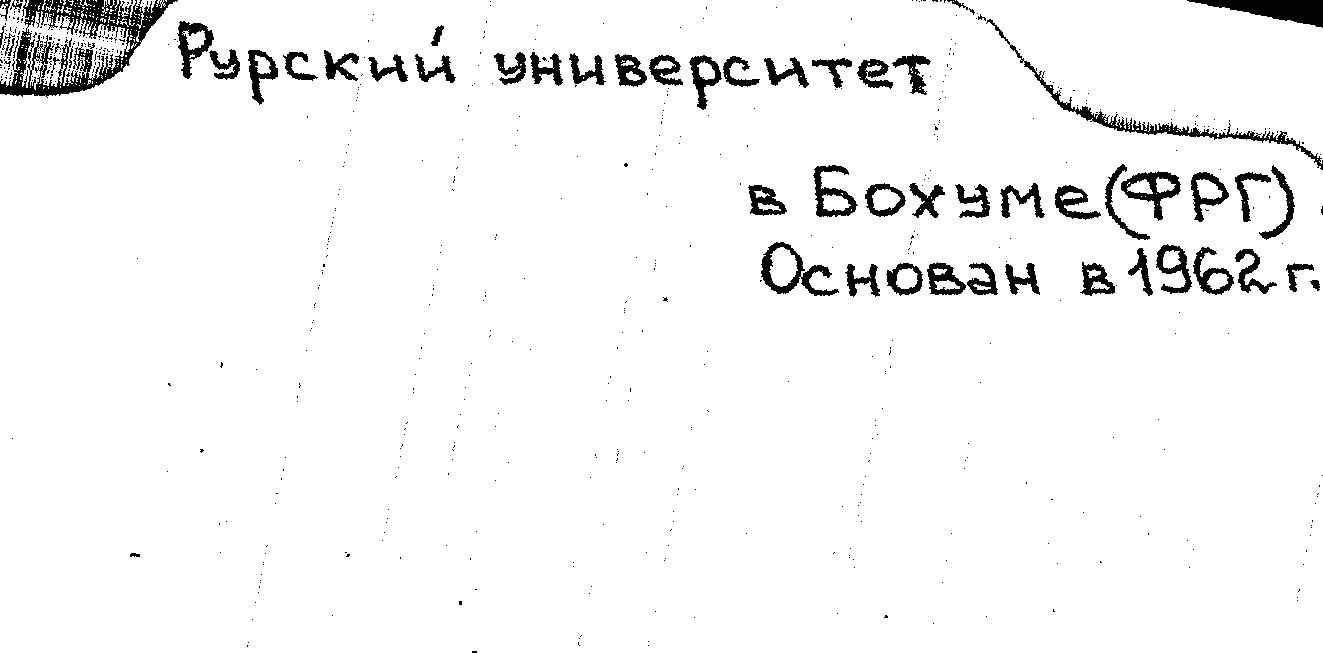 Рурский университет
в Бохуме (ФРГ).
Основан в 1962 г.